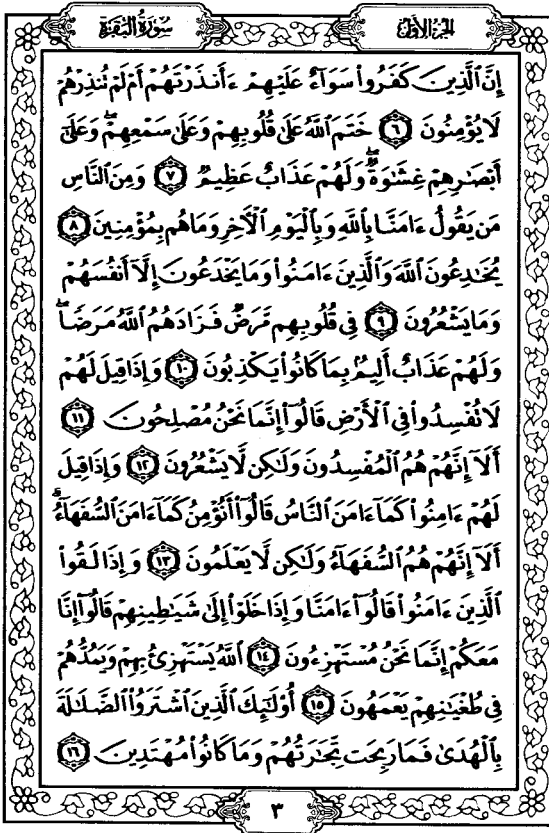 سُورَةُ البَقَرَةِ
الجُزْءُ الأَوَّلُ
إِنَّ ٱلَّذِينَ كَفَرُوا۟ سَوَآءٌ عَلَيْهِمْ ءَأَنذَرْتَهُمْ أَمْ لَمْ تُنذِرْهُمْ
لَا يُؤْمِنُونَ ٦ خَتَمَ ٱللَّهُ عَلَىٰ قُلُوبِهِمْ وَعَلَىٰ سَمْعِهِمْ ۖ وَعَلَىٰٓ
أَبْصَٰرِهِمْ غِشَٰوَةٌ ۖ وَلَهُمْ عَذَابٌ عَظِيمٌ ٧ وَمِنَ ٱلنَّاسِ
مَن يَقُولُ ءَامَنَّا بِٱللَّهِ وَبِٱلْيَوْمِ ٱلْأَخِرِ وَمَا هُم بِمُؤْمِنِينَ ٨
يُخَٰدِعُونَ ٱللَّهَ وَٱلَّذِينَ ءَامَنُوا۟ وَمَا يَخْدَعُونَ إِلَّآ أَنفُسَهُمْ
وَمَا يَشْعُرُونَ ٩ فِى قُلُوبِهِم مَّرَضٌ فَزَادَهُمُ ٱللَّهُ مَرَضًا ۖ
وَلَهُمْ عَذَابٌ أَلِيمٌۢ بِمَا كَانُوا۟ يَكْذِبُونَ ١٠ وَإِذَا قِيلَ لَهُمْ
لَا تُفْسِدُوا۟ فِى ٱلْأَرْضِ قَالُوٓا۟ إِنَّمَا نَحْنُ مُصْلِحُونَ ١١
أَلَآ إِنَّهُمْ هُمُ ٱلْمُفْسِدُونَ وَلَٰكِن لَّا يَشْعُرُونَ ١٢ وَإِذَا قِيلَ
لَهُمْ ءَامِنُوا۟ كَمَآ ءَامَنَ ٱلنَّاسُ قَالُوٓا۟ أَنُؤْمِنُ كَمَآ ءَامَنَ ٱلسُّفَهَآءُ ۗ
أَلَآ إِنَّهُمْ هُمُ ٱلسُّفَهَآءُ وَلَٰكِن لَّا يَعْلَمُونَ ١٣ وَإِذَا لَقُوا۟
ٱلَّذِينَ ءَامَنُوا۟ قَالُوٓا۟ ءَامَنَّا وَإِذَا خَلَوْا۟ إِلَىٰ شَيَٰطِينِهِمْ قَالُوٓا۟ إِنَّا
مَعَكُمْ إِنَّمَا نَحْنُ مُسْتَهْزِءُونَ ١٤ ٱللَّهُ يَسْتَهْزِئُ بِهِمْ وَيَمُدُّهُمْ
فِى طُغْيَٰنِهِمْ يَعْمَهُونَ ١٥ أُو۟لَٰٓئِكَ ٱلَّذِينَ ٱشْتَرَوُا۟ ٱلضَّلَٰلَةَ
بِٱلْهُدَىٰ فَمَا رَبِحَت تِّجَٰرَتُهُمْ وَمَا كَانُوا۟ مُهْتَدِينَ ١٦
٣